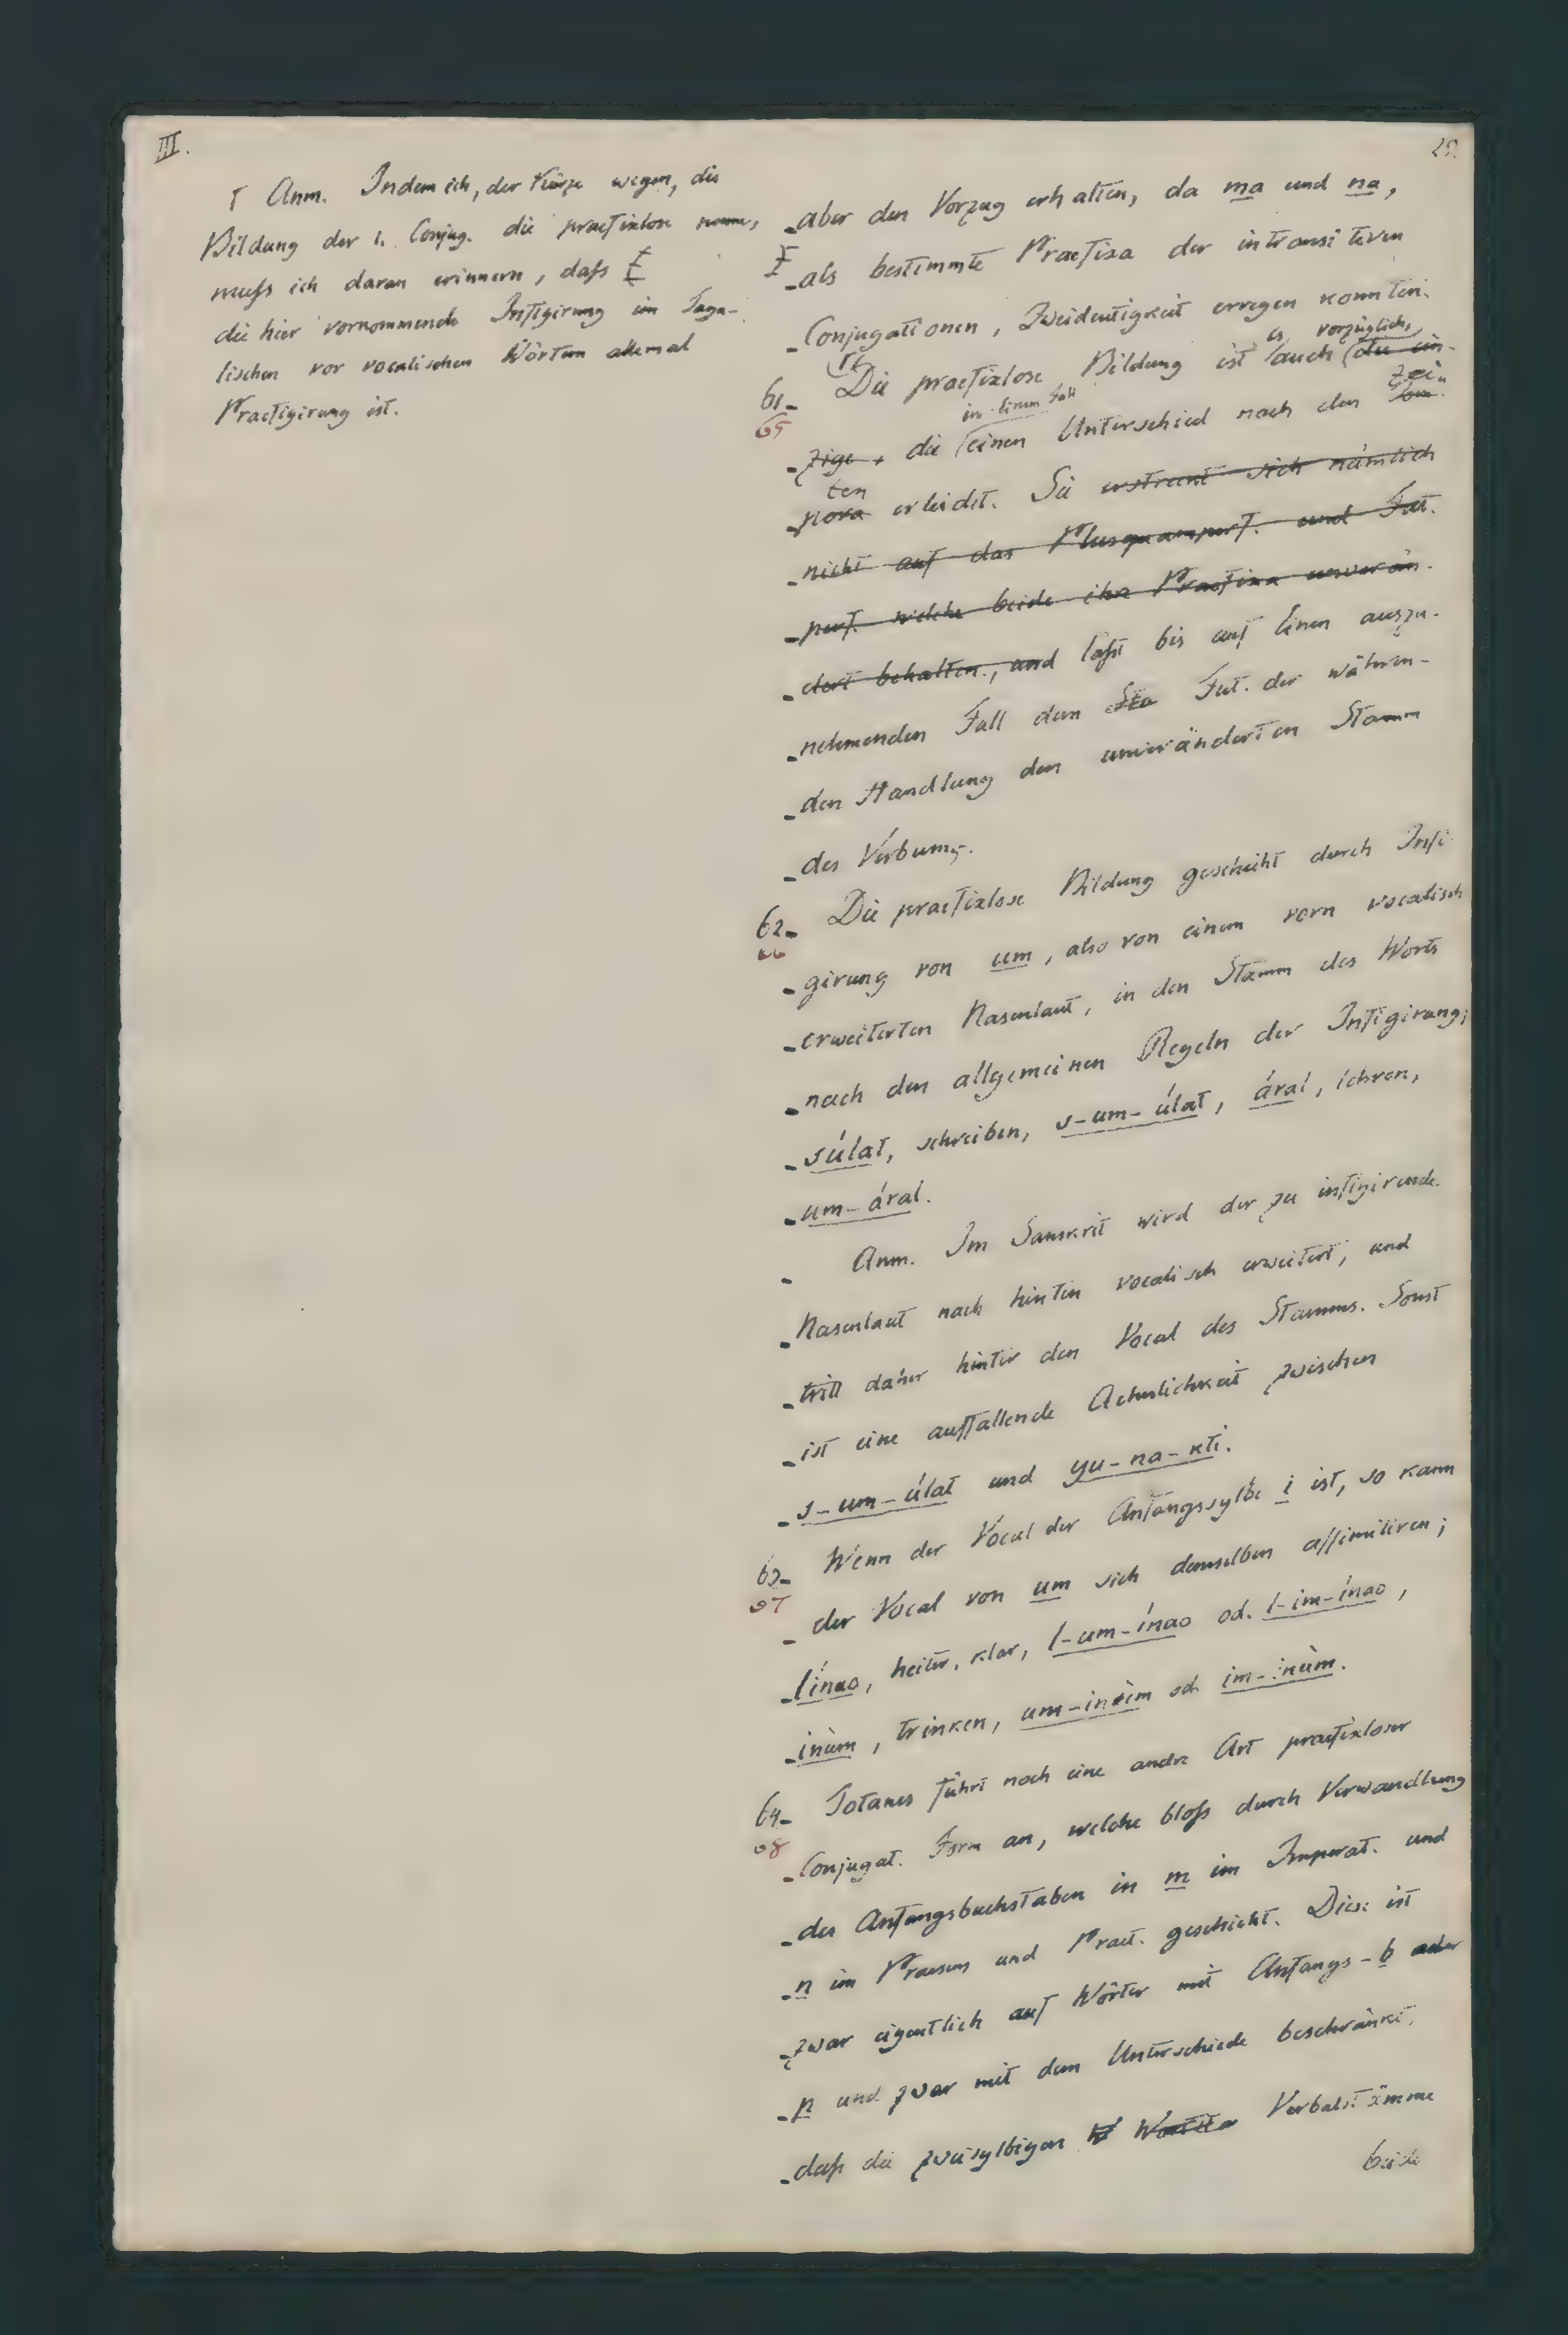 III.
29.
Γ Anm. Indem ich, der Kürze wegen, die
Bildung der 1. Conjug. die praefixlose nenne,
muſs ich daran erinnern, daſs [
die hier vorkommende Infigirung im Taga-
lischen vor vocalischen Wörtern allemal
Praefigirung ist.
aber den Vorzug erhalten, da ma und na,
als bestimmte Praefixa der intransitiven
Conjugationen, Zweideutigkeit erregen konnten.
es vorzüglich,
61 Die praefixlose Bildung ist auch die ein-
65
in einem Fall Zei-
zige, die einen Unterschied nach den Tem-
ten
pora erleidet. Sie erstreckt sich nämlich
nicht auf das Plusquamperf. und Fut.
perf. welche beide ihre Praefixa unverän-
dert behalten, und läſst bis auf Einen auszu-
nehmenden Fall dem Fut. der währen-
den Handlung den unveränderten Stamm
des Verbums.
62 Die praefixlose Bildung geschieht durch Infi-
66
girung von um, also von einem vorn vocalisch
erweiterten Nasenlaut, in den Stamm des Worts
nach den allgemeinen Regeln der Infigirung;
súlat, schreiben, s-um-úlat, áral, lehren,
um-áral.
Anm. Im Sanskrit wird der zu infigirende
Nasenlaut nach hinten vocalisch erweitert, und
tritt daher hinter den Vocal des Stamms. Sonst
ist eine auffallende Aehnlichkeit zwischen
s-um-úlat und yu-na-kti.
63 Wenn der Vocal der Anfangssylbe i ist, so kann
67
der Vocal von um sich demselben assimiliren;
línao, heiter, klar, l-um-ínao od. l-im-ínao,
inùm, trinken, um-inùm od. im-inùm.
64 Totanes führt noch eine andre Art praefixloser
68
Conjugat. Form an, welche bloſs durch Verwandlung
des Anfangsbuchstaben in m im Imperat. und
n im Praesens und Praet. geschieht. Diese ist
zwar eigentlich auf Wörter mit Anfangs-b oder
p und zwar mit dem Unterschiede beschränkt,
daſs die zweisylbigen W Wörter Verbalstämme
beide